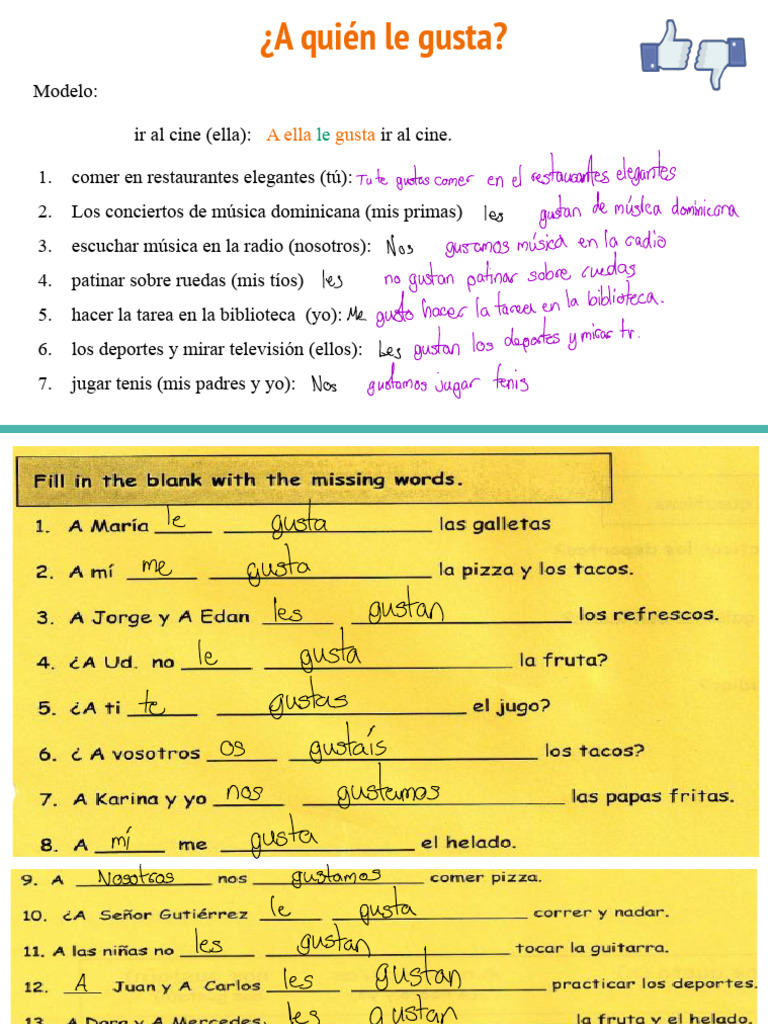 ¿A quién le gusta?
Modelo:
ir al cine (ella): A ella le gusta ir al cine.
1. comer en restaurantes elegantes (tú): Tu te gustas comer en el restaurantes elegantes
2. Los conciertos de música dominicana (mis primas) les gustan de múslca dominicana
3. escuchar música en la radio (nosotros): Nos gustamos música en la radio
4. patinar sobre ruedas (mis tíos) les no gustan patinar sobre ruedas
5. hacer la tarea en la biblioteca (yo): Me gusto hacer la tarea en la biblioteca.
6. los deportes y mirar televisión (ellos): Les gustan los deportes y mirar tv.
7. jugar tenis (mis padres y yo): Nos gustamos jugar tenis
Fill in the blank with the missing words.
1. A María le gusta las galletas
2. A mí me gusta la pizza y los tacos.
3. A Jorge y A Edan les gustan los refrescos.
4. ¿A Ud. no le gusta la fruta?
5. ¿A ti te gustas el jugo?
6. ¿ A vosotros os gustaís los tacos?
7. A Karina y yo nos gustamos las papas fritas.
8. A mí me gusta el helado.
9. A Nosotros nos gustamos comer pizza.
10. ¿A Señor Gutiérrez le gusta correr y nadar.
11. A las niñas no les gustan tocar la guitarra.
12. A Juan y A Carlos les gustan practicar los deportes.
13. A Dora y A Mercedes, les gustan la fruta y el helado.